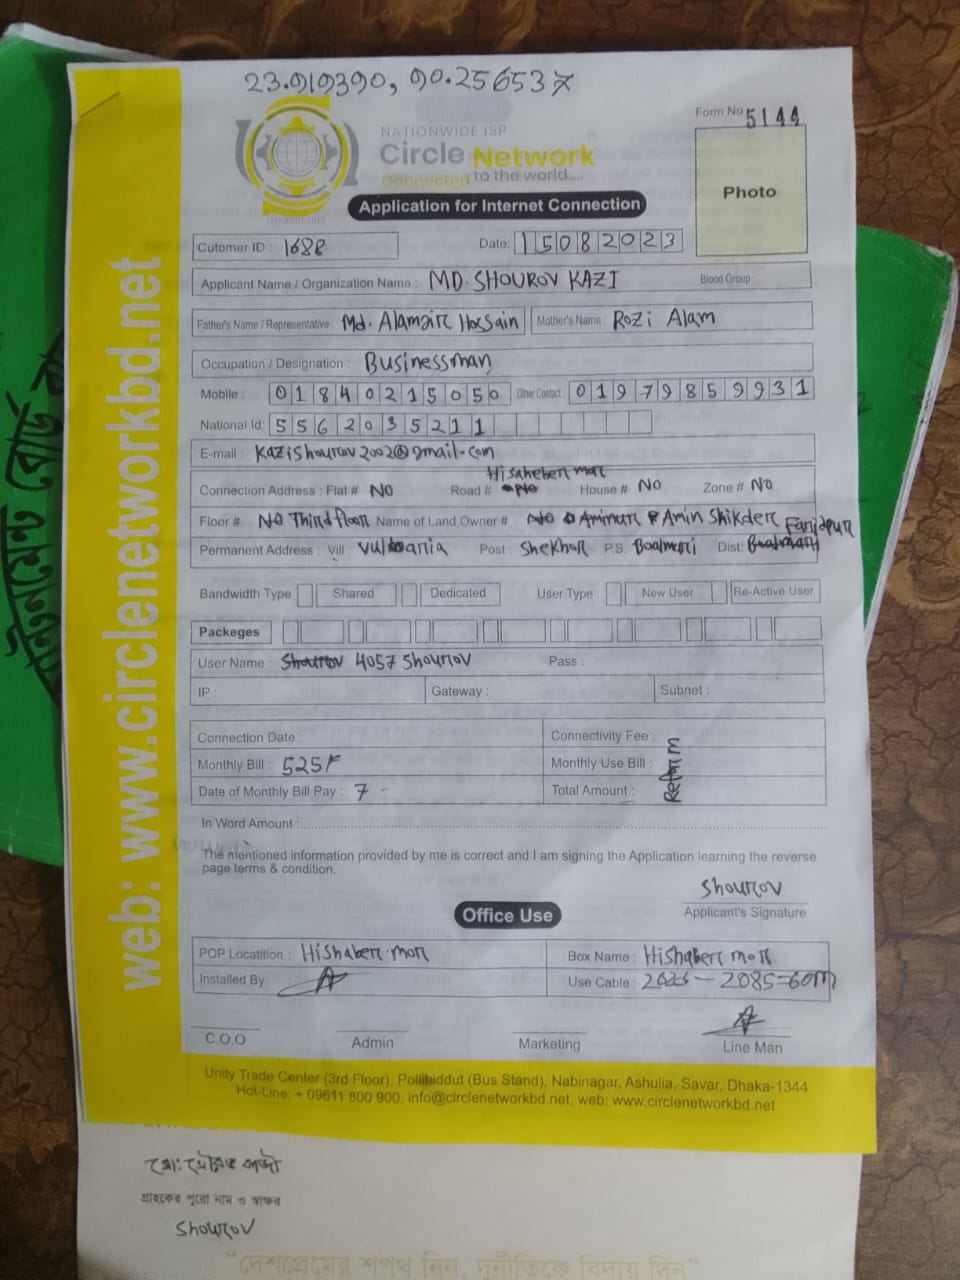 23.919390, 90.256537
Form No 5144
NATIONWIDE ISP
Circle Network
Connected to the world.....
Photo
Application for Internet Connection
Cutomer ID : 1688
Date: 15082023
Applicant Name / Organization Name : MD. SHOUROV KAZI Blood Group :
Father's Name / Representative : Md. Alamgir Hossain Mother's Name : Rozi Alam
Occupation / Designation : Businessman
Mobile : 01840215050 Other Contact : 01979859931
National Id: 5562035211
E-mail : kazishourov2002@gmail.com
Hisaheber mor
Connection Address : Flat # NO Road # House # NO Zone # NO
Floor # NO Third floor Name of Land Owner # Aminur Amin Shikder Faridpur
Permanent Address : Vill : Post : Shekhor P.S. Boalmari Dist:
Bandwidth Type Shared Dedicated User Type : New User Re-Active User
Packeges
User Name : 4057 Shourov Pass :
IP : Gateway : Subnet :
Connection Date : Connectivity Fee :
Monthly Bill : 525/- Monthly Use Bill :
Date of Monthly Bill Pay : 7 - Total Amount :
In Word Amount :
The mentioned information provided by me is correct and I am signing the Application learning the reverse
page terms & condition.
Shourov
Applicant's Signature
Office Use
POP Locatition : Hishaber mor Box Name : Hishaber mor
Installed By Use Cable : - 2085=60m
C.O.O Admin Marketing Line Man
Unity Trade Center (3rd Floor), Pollibiddut (Bus Stand), Nabinagar, Ashulia, Savar, Dhaka-1344
Hot-Line: + 09611 800 900, info@circlenetworkbd.net, web: www.circlenetworkbd.net
web: www.circlenetworkbd.net
মো: সৌরভ কাজী
গ্রাহকের পুরো নাম ও স্বাক্ষর
Shourov
“দেশপ্রেমের শপথ নিন, দুর্নীতিকে বিদায় দিন”